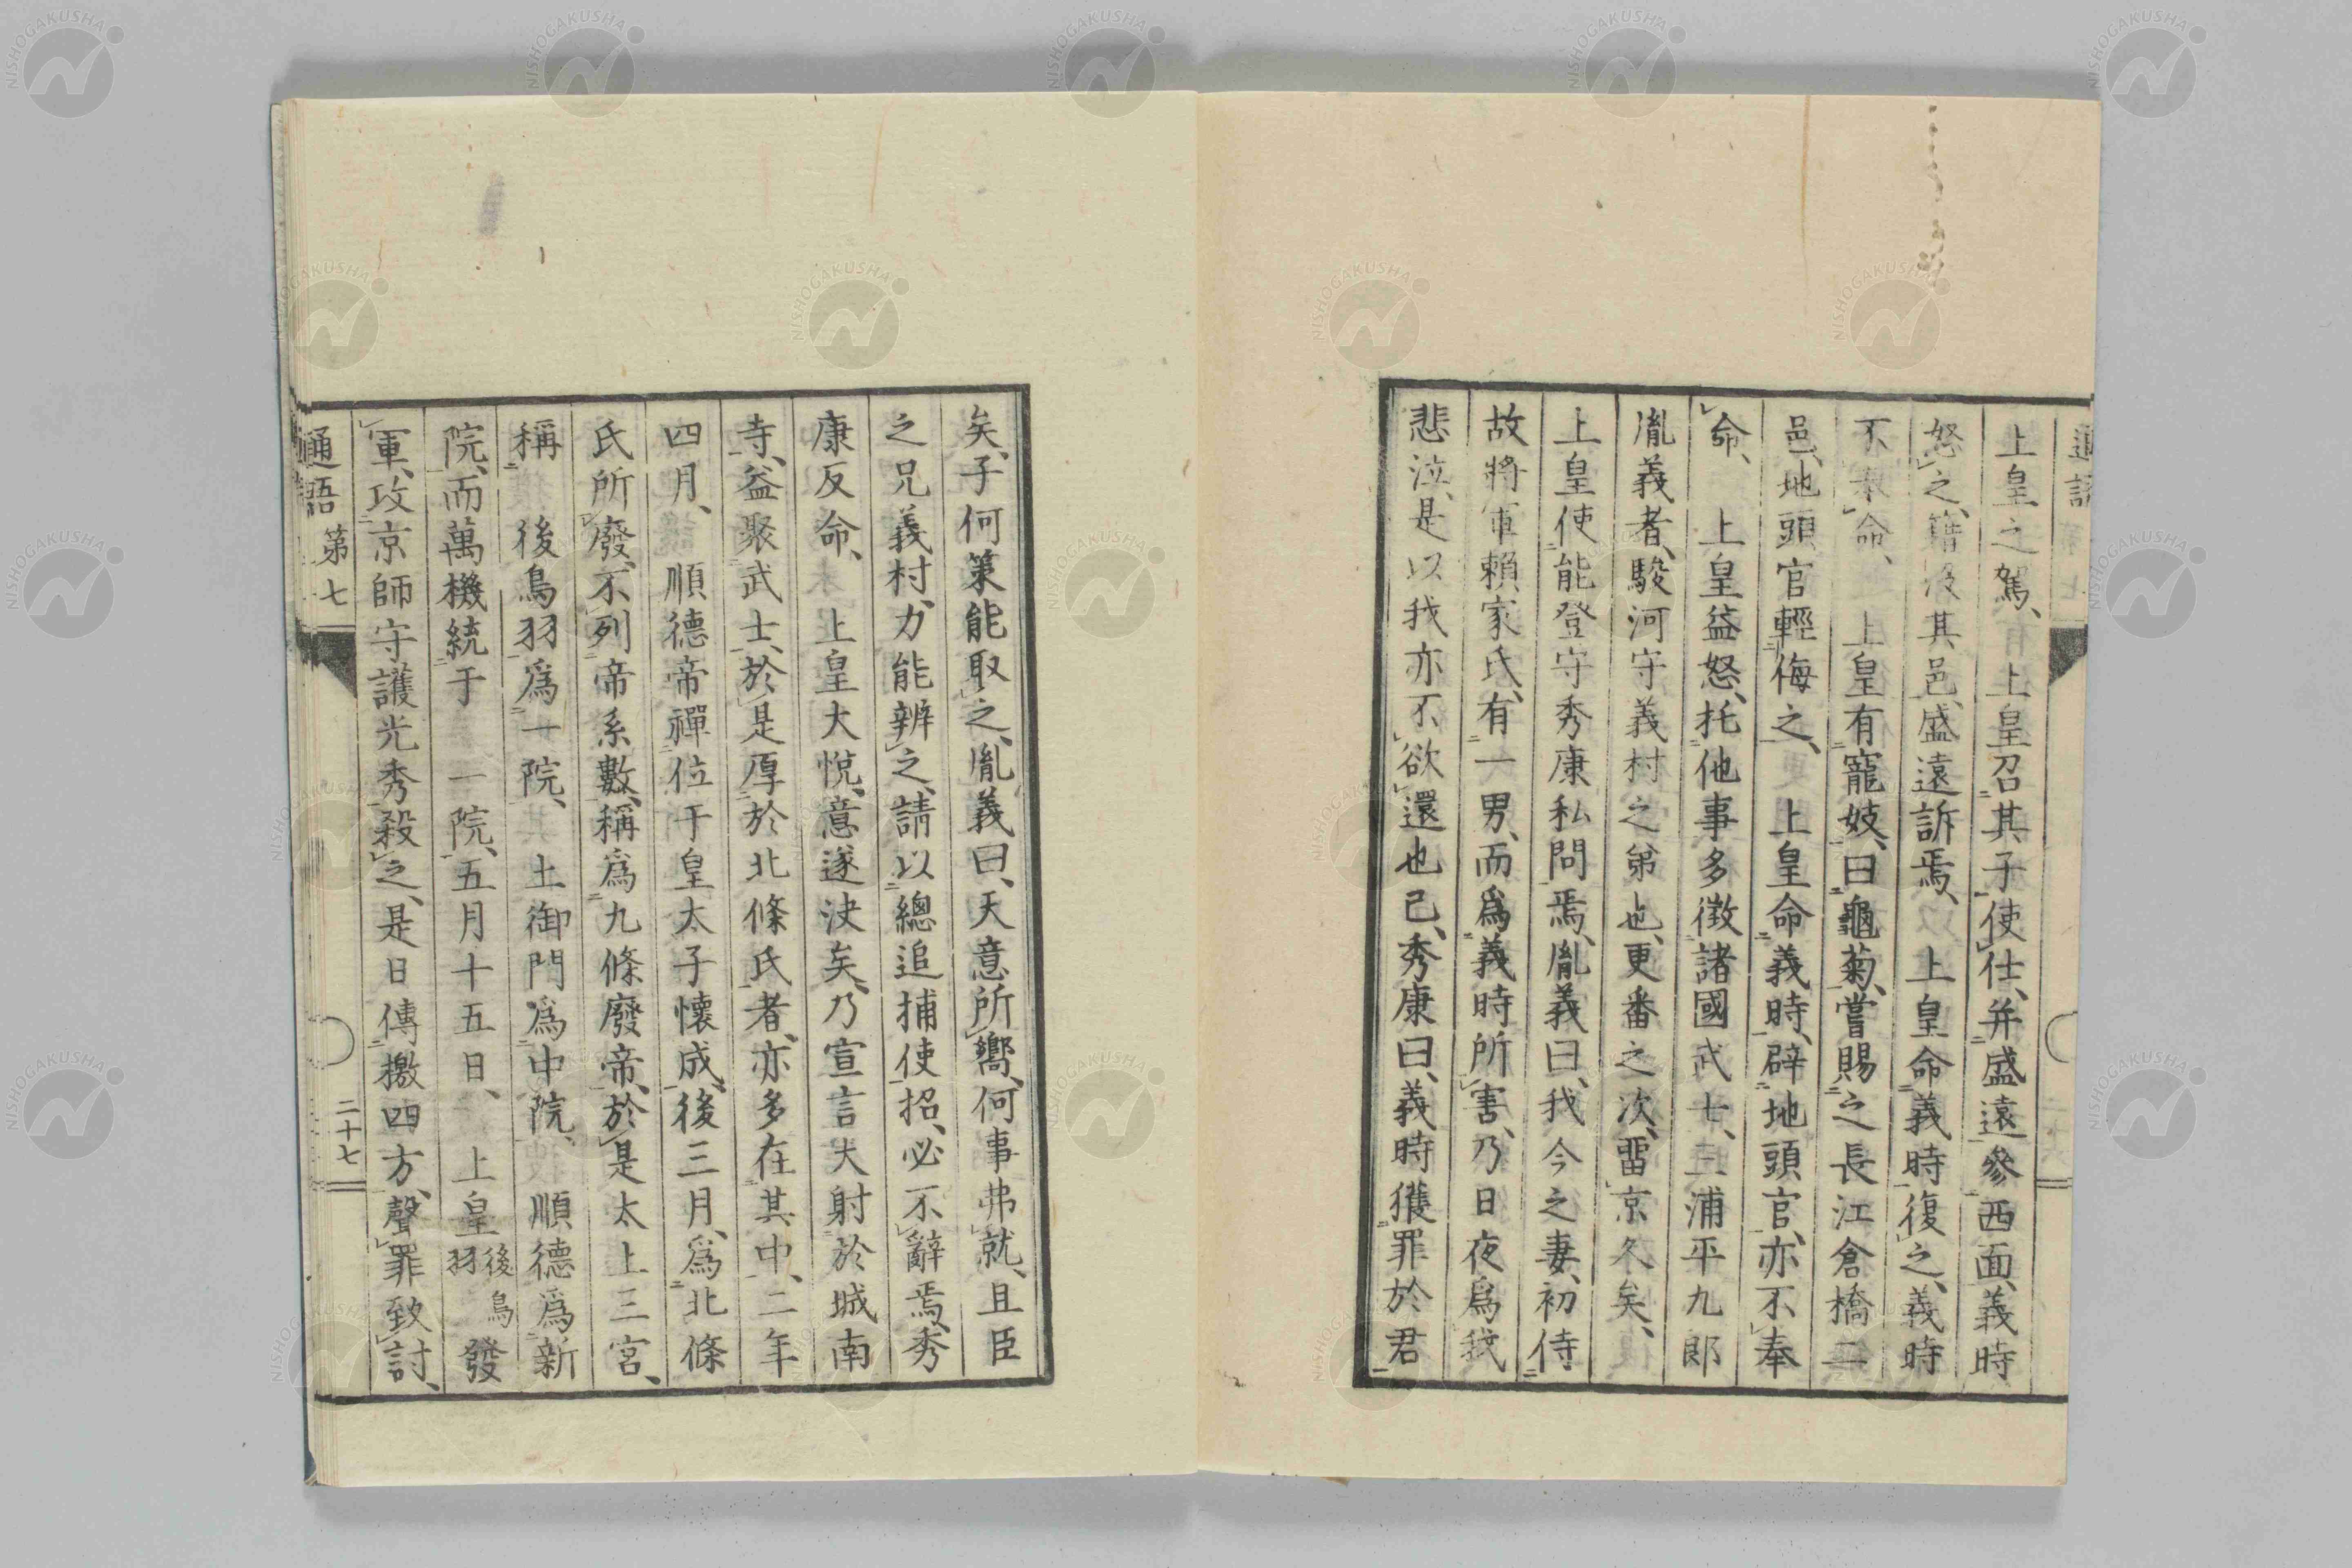 通語
上皇之駕、上皇召其子使仕、并盛遠參西面、義時
怒之、籍沒其邑、盛遠訴焉、上皇命義時復之、義時
不奉命、上皇有寵妓、曰龜菊、嘗賜之長江倉橋二
邑、地頭官輕侮之、上皇命義時、辟地頭官、亦不奉
命、上皇益怒、托他事多徵諸國武士、三浦平九郎
胤義者、駿河守義村之弟也、更番之次、畱京久矣、
上皇使能登守秀康私問焉、胤義曰、我今之妻、初侍
故將軍賴家氏、有一男、而爲義時所害、乃日夜爲我
悲泣、是以我亦不欲還也已、秀康曰、義時獲罪於君
矣、子何策能取之、胤義曰、天意所嚮、何事弗就、且臣
之兄義村、力能辨之、請以總追捕使招、必不辭焉、秀
康反命、上皇大悅、意遂決矣、乃宣言大射於城南
寺、益聚武士、於是厚於北條氏者、亦多在其中、二年
四月、順德帝禪位于皇太子懷成、後三月、爲北條
氏所廢、不列帝系數、稱爲九條廢帝、於是太上三宮、
稱後鳥羽爲一院、土御門爲中院、順德爲新
院、而萬機統于一院、五月十五日、上皇後鳥羽發
軍、攻京師守護光秀殺之、是日傳檄四方、聲罪致討、
通語 第七 二十七
NISHOGAKUSHA